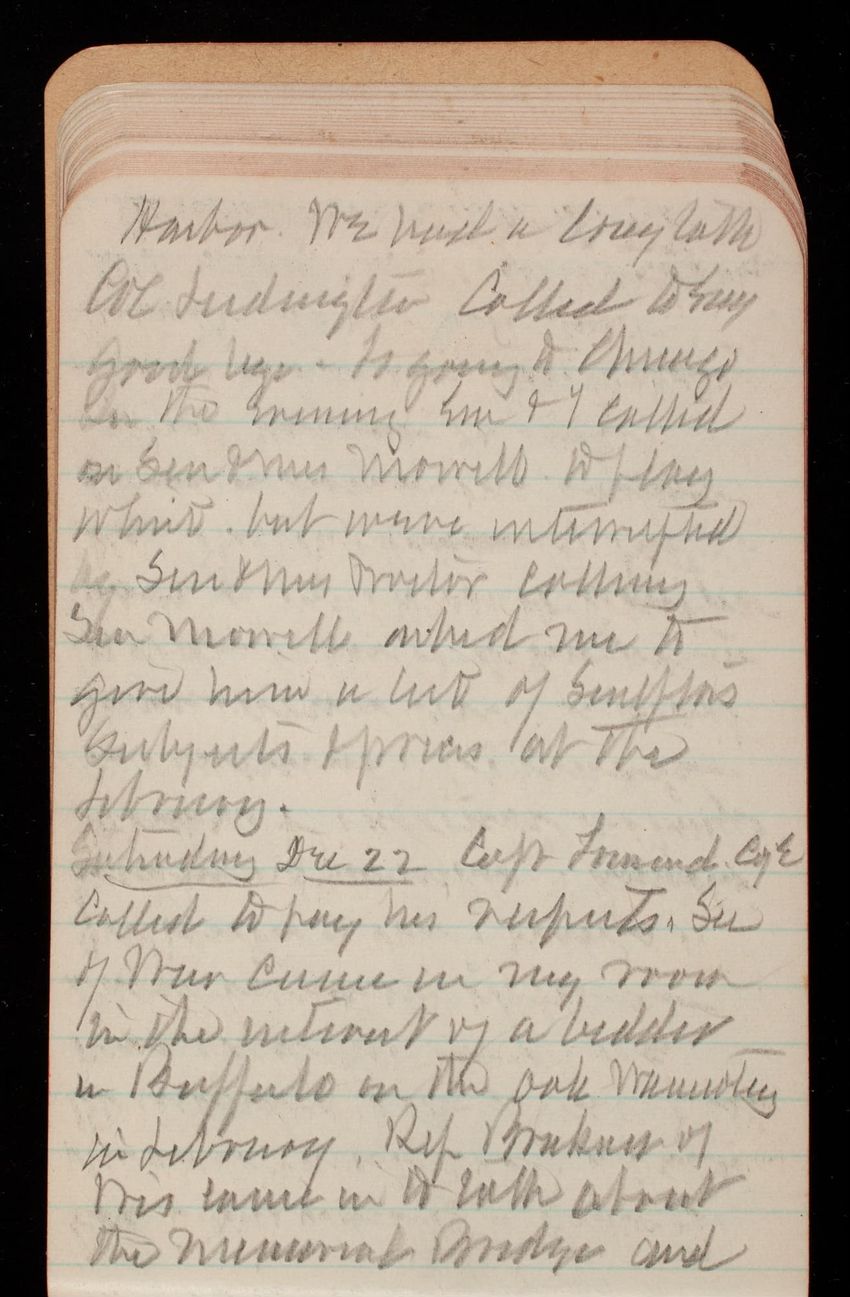 Harbor. We had a long talk
Col Ludington Called to say
good bye - Is going to Chicago
In the evening Em & I called
on Sen & Mrs Morrill to play
whist. but were interrupted
by Sen & Mrs Proctor calling
Sen Morrill asked me to
give him a list of Sculptors
Subjects & prices at the
Library.
Saturday Dec 22 Capt CofE
Called to pay his respects. Sec
of War came in my room
in the interest of a bidder
in Buffalo on the oak
in Library. Rep of
Wis came in to talk about
the Memorial Bridge and